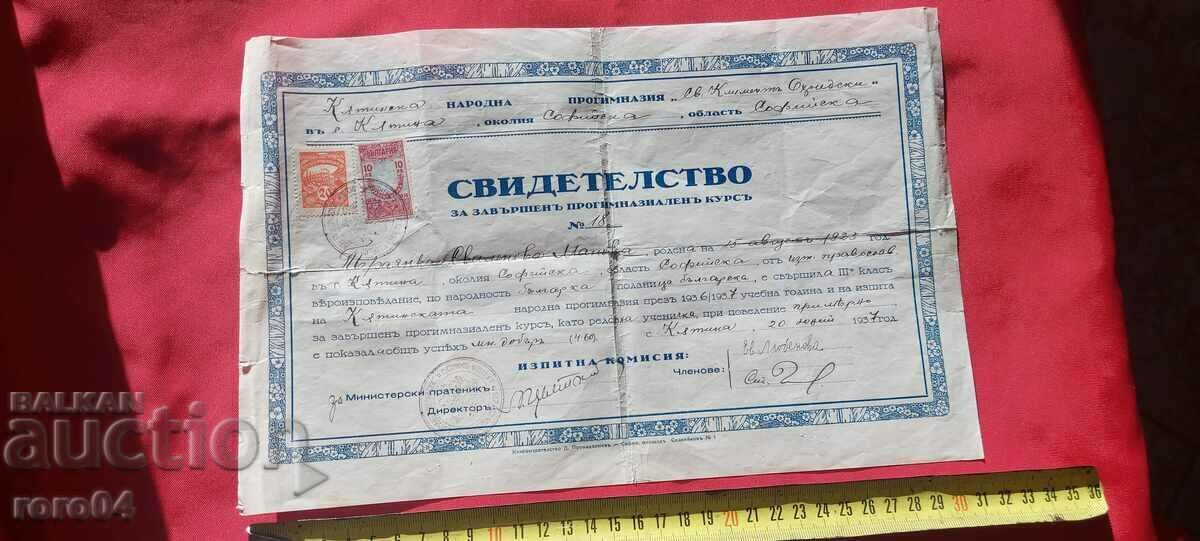 Клтинска НАРОДНА ПРОГИМНАЗИЯ „Св. Климентъ Охридски"
въ с. Клтина, околия Софийска, область Софийска
БЪЛГАРИЯ
10 10
СВИДЕТЕЛСТВО
ЗА ЗАВЪРШЕНЪ ПРОГИМНАЗИАЛЕНЪ КУРСЪ
№ 18
родена на 15 августъ 1923 год.
въ с. Клтина, околия Софийска, область Софийска, отъ изт. православ
вѣроизповѣдание, по народность българка поданица българска, е свършила III класъ
на Клтинската народна прогимназия презъ 1936/1937 учебна година и на изпита
за завършенъ прогимназиаленъ курсъ, като редовна ученичка, при поведение примѣрно
е показала общъ успѣхъ мн. добъръ (4·60). с. Клтина, 20 юний 1937 год.
ИЗПИТНА КОМИСИЯ:
за Министерски пратеникъ:
Директоръ:
Членове:
Ев. Любенова
BALKAN
auction
roro04
10 11 12 13 14 15 16 17 18 19 20 21 22 23 24 25 26 27 28 29 30 31 32 33 34 35 36